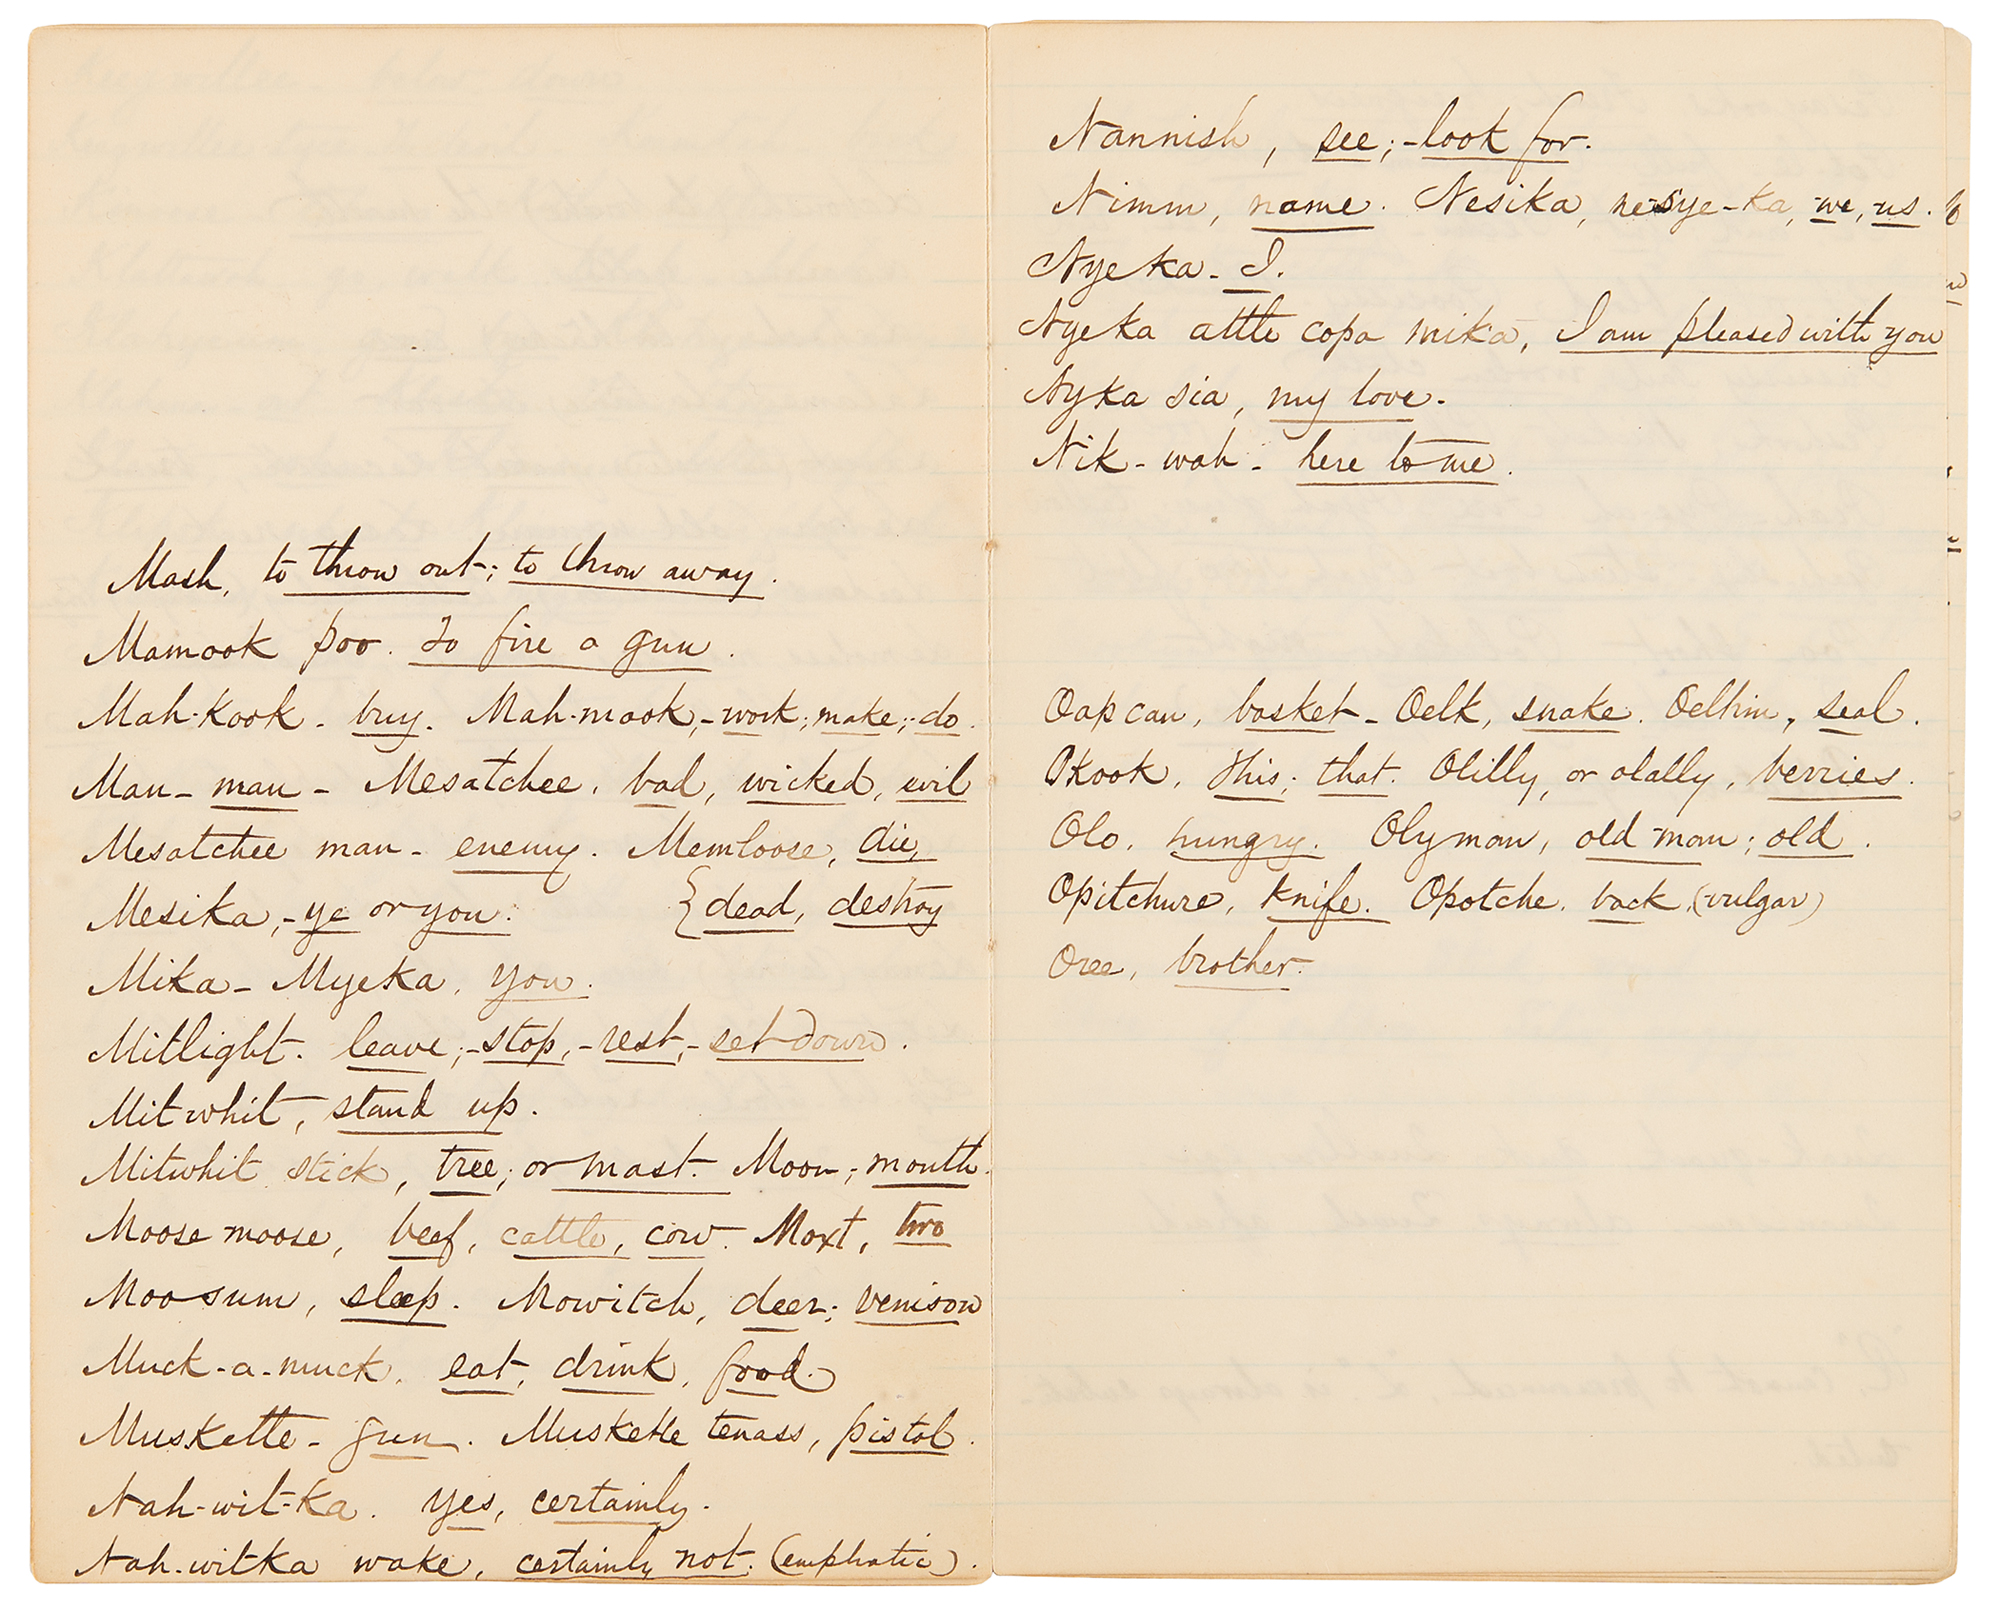 Mash, to throw out; to throw away.
Mamook poo. To fire a gun.
Mah-kook - buy. Mah-mook,- work; make;- do.
Man - man - Mesatchee, bad, wicked, evil
Mesatchee man - enemy. Memloose, die,
Mesika,- ye or you. {dead, destroy
Mika - Myeka, you.
Mitlight. leave;- stop,- rest,- set down.
Mitwhit, stand up.
Mitwhit stick, tree; or mast. Moon; month.
Moose moose, beef, cattle, cow. Moxt, two
Moosum, sleep. Mowitch, deer; venison
Muck-a-muck, eat, drink, food.
Muskette - gun. Muskette tenass, pistol.
Nah-wit-ka. yes, certainly.
Nah-witka wake, certainly not. (emphatic).
Nannish, see;- look for.
Nimm, name. Nesika, ne-sye-ka, we, us.
Nyeka - I.
Nyeka attle copa mika, I am pleased with you
Nyka sia, my love.
Nik-wah - here to me.
Oapcan, basket - Oelk, snake. Oelhim, seal.
Okook, this; that. Olilly, or olally, berries.
Olo. hungry. Olyman, old man; old.
Opitchure, knife. Opotche. back. (vulgar)
Oree, brother.